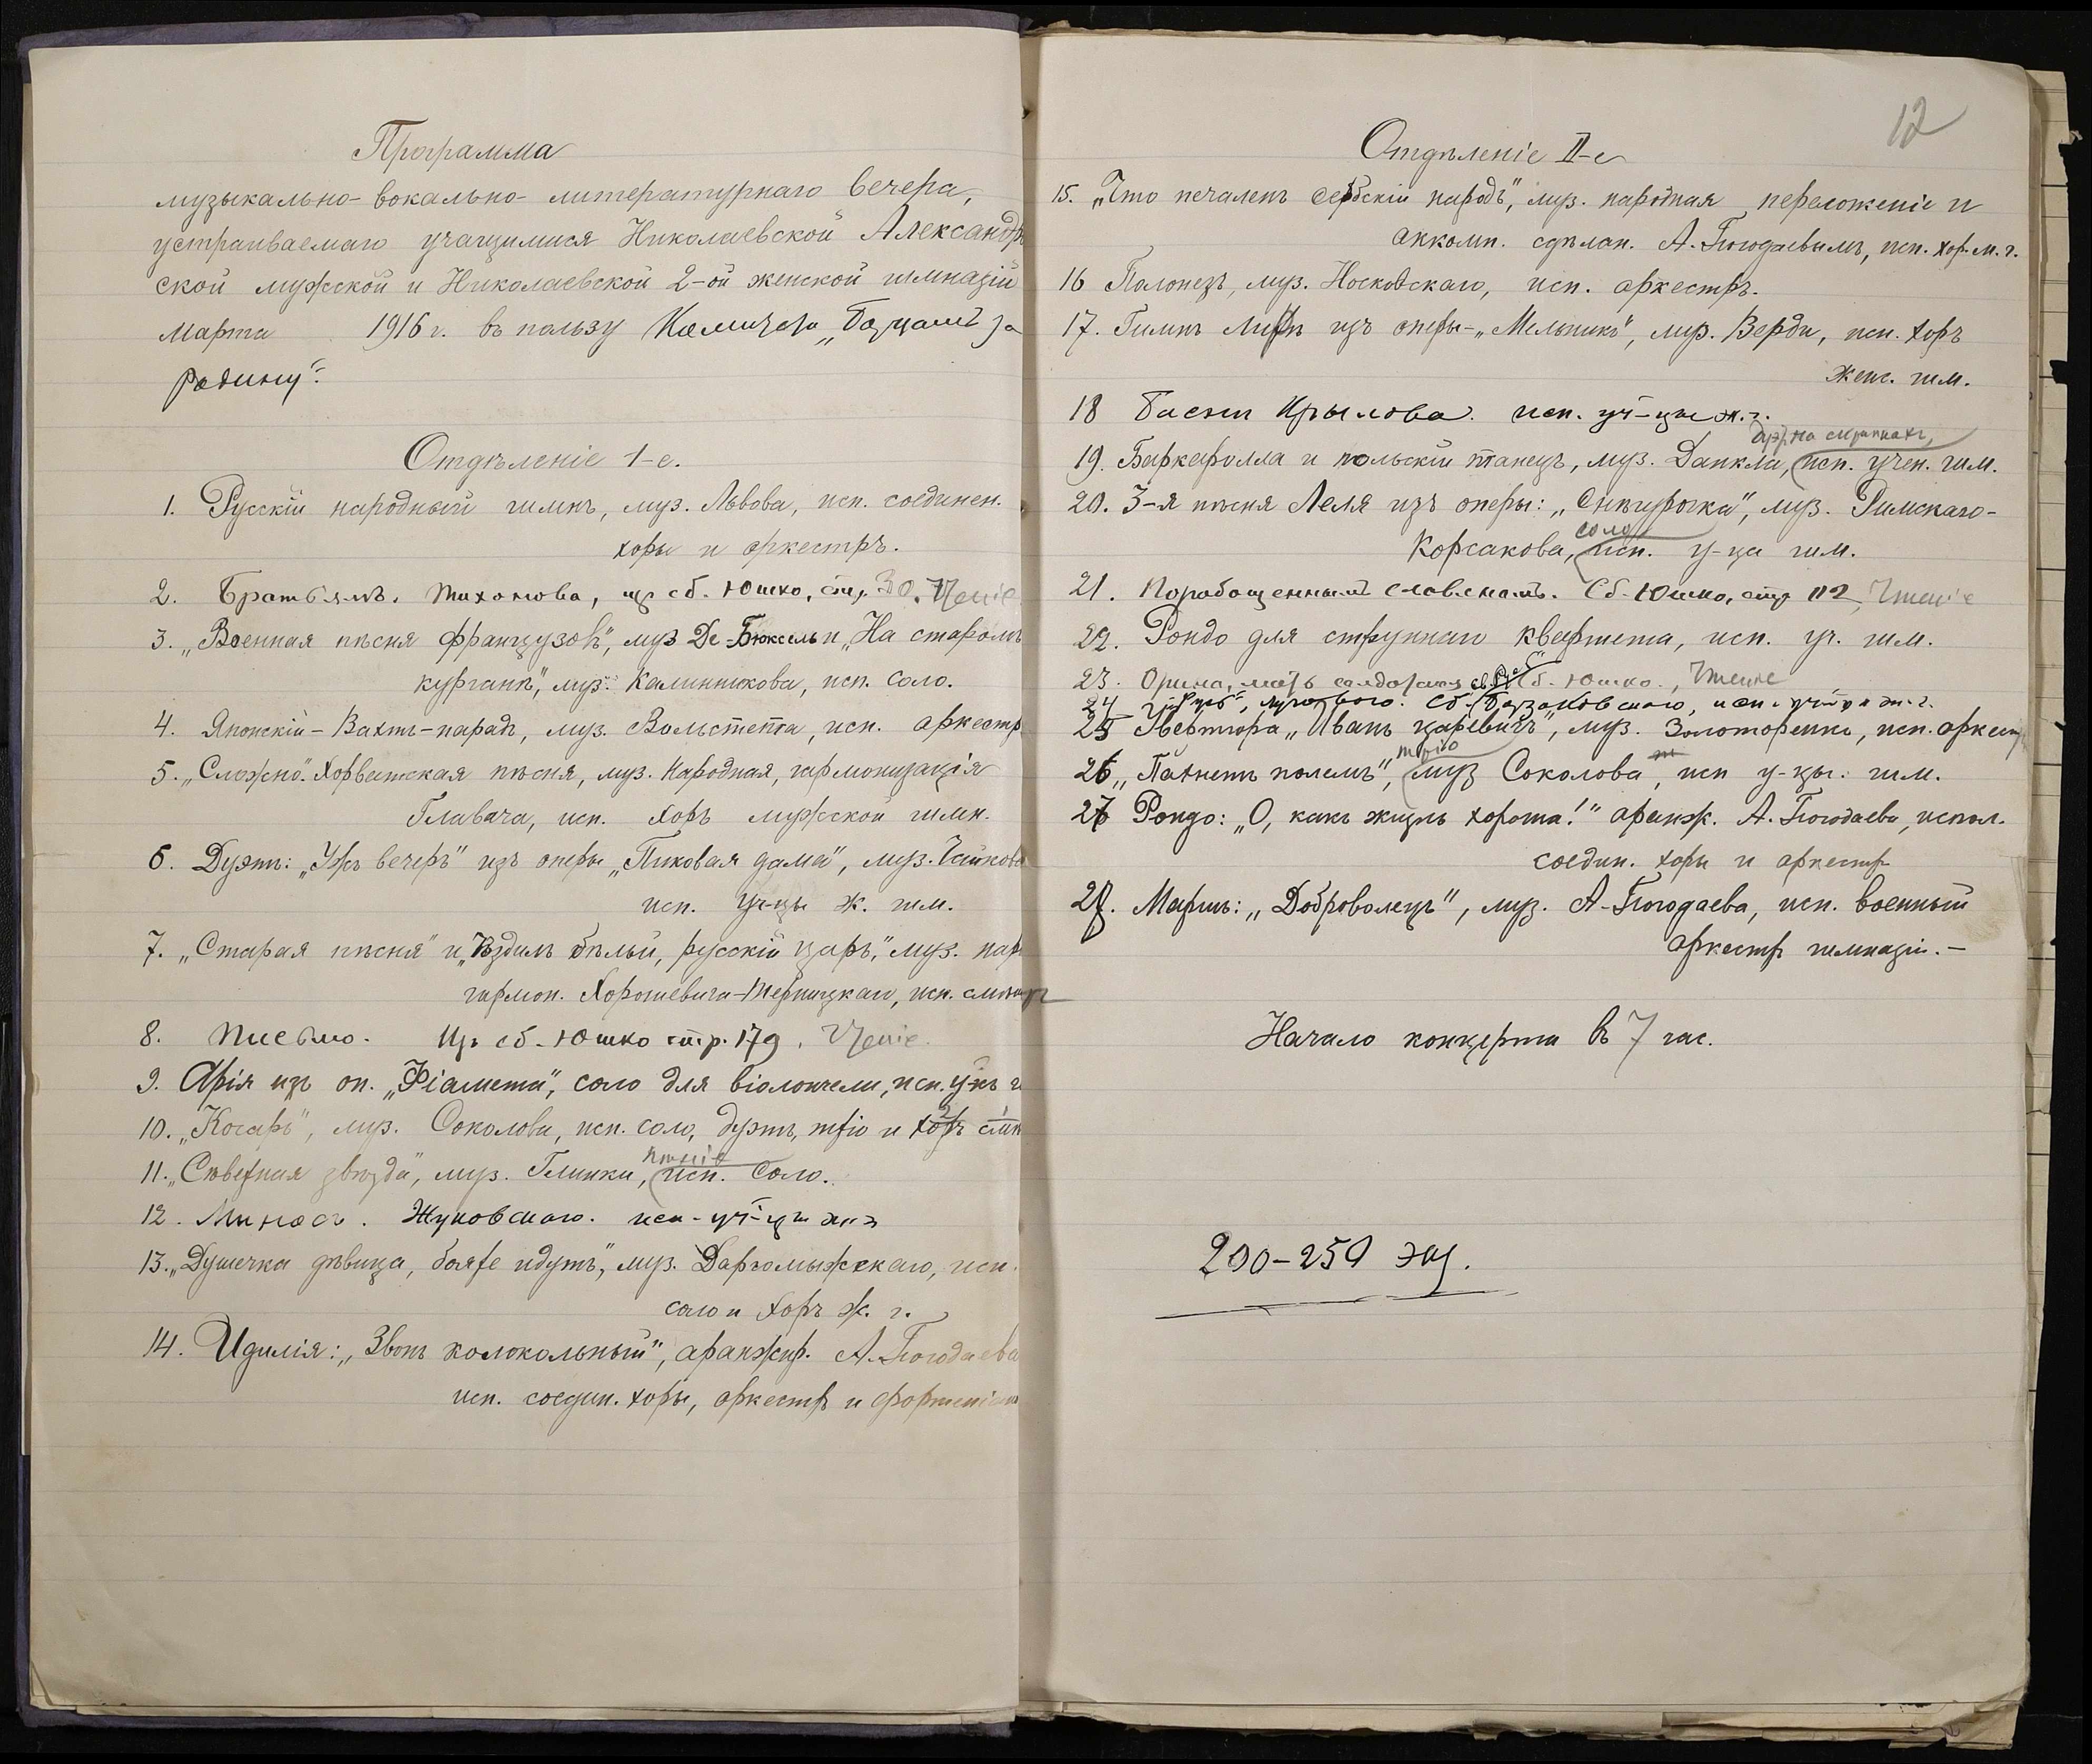 Программа
музыкально-вокально-литературнаго вечера,
устраиваемаго учащимися Николаевской Александр
ской мужской и Николаевской 2-ой женской гимназій
марта 1916 г. въ пользу Комитета „Бойцамъ за
родину".
Отдѣленіе 1-е.
1. Русскій народный гимнъ, муз. Львова, исп. соединен.
хоры и оркестръ.
2. Братьямъ. Тихонова, из сб. Юшко, стр. 30. Чтеніе
3. „Военная пѣсня французовъ", муз Де-Бюксель и „На старомъ
курганѣ", муз. Калинникова, исп. соло.
4. Японскій-Вахтъ-парадъ, муз. Вальстета, исп. оркестр
5. „Сложно". Хорватская пѣсня, муз. Народная, гармонизація
Главача, исп. хоръ мужской гимн.
6. Дуэтъ: „Ужъ вечеръ" изъ оперы „Пиковая дама", муз. Чайковс
исп. уч-цы ж. гим.
7. „Старая пѣсня" и „Ѣздилъ бѣлый, русскій царь", муз. нар
гармон. Хорошевича-Терницкаго, исп.
8. Письмо. Из сб. Юшко стр. 179. Чтеніе.
9. Арія изъ оп. „Фіамета", соло для віолончели, исп. уч-къ г
10. „Косарь", муз. Соколова, исп. соло, дуэтъ, тріо и хоръ
11. „Сѣверная звѣзда", муз. Глинки, пѣніе исп. Соло.
12. Жуковскаго. исп. уч-цы ж. г.
13. „Душечка дѣвица, бояре идутъ", муз. Даргомыжскаго, исп.
соло и хоръ ж. г.
14. Идилія: „Звонъ колокольный", аранжир. А. Погодаева
исп. соедин. хоры, оркестръ и фортепіано
12
Отдѣленіе II-е
15. „Что печаленъ сербскій народъ", муз. народная переложеніе и
аккомп. сдѣлан. А. Погодаевымъ, исп. хор. м. г.
16 Полонезъ, муз. Носковскаго, исп. оркестръ.
17. Гимнъ изъ оперы-„Мельникъ", муз. Верди, исп. хоръ
женс. гим.
18 Басни Крылова. исп. уч-цы ж. г.
дуэт на скрипкахъ,
19. Баркаролла и польскій танецъ, муз. Данкла, исп. учен. гим.
20. 3-я пѣсня Леля изъ оперы: „Снѣгурочка", муз. Римскаго-
соло
Корсакова, исп. у-ца гим.
21. Порабощеннымъ славянамъ. Сб. Юшко, стр 112, Чтеніе
22. Рондо для струннаго квартета, исп. уч. гим.
23. Орина, мать солдатская Сб. Юшко., Чтеніе
24
25 Увертюра „Иванъ царевичъ", муз. Золоторенко, исп. оркестр
тріо
26 „Пахнетъ полемъ", муз Соколова, исп у-цы. гим.
27 Рондо: „О, какъ жизнь хороша!" аранж. А. Погодаева, испол.
соедин. хоры и оркестр
28. Маршъ: „Доброволецъ", муз. А. Погодаева, исп. военный
оркестръ гимназіи.-
Начало концерта въ 7 час.
200-250 экз.